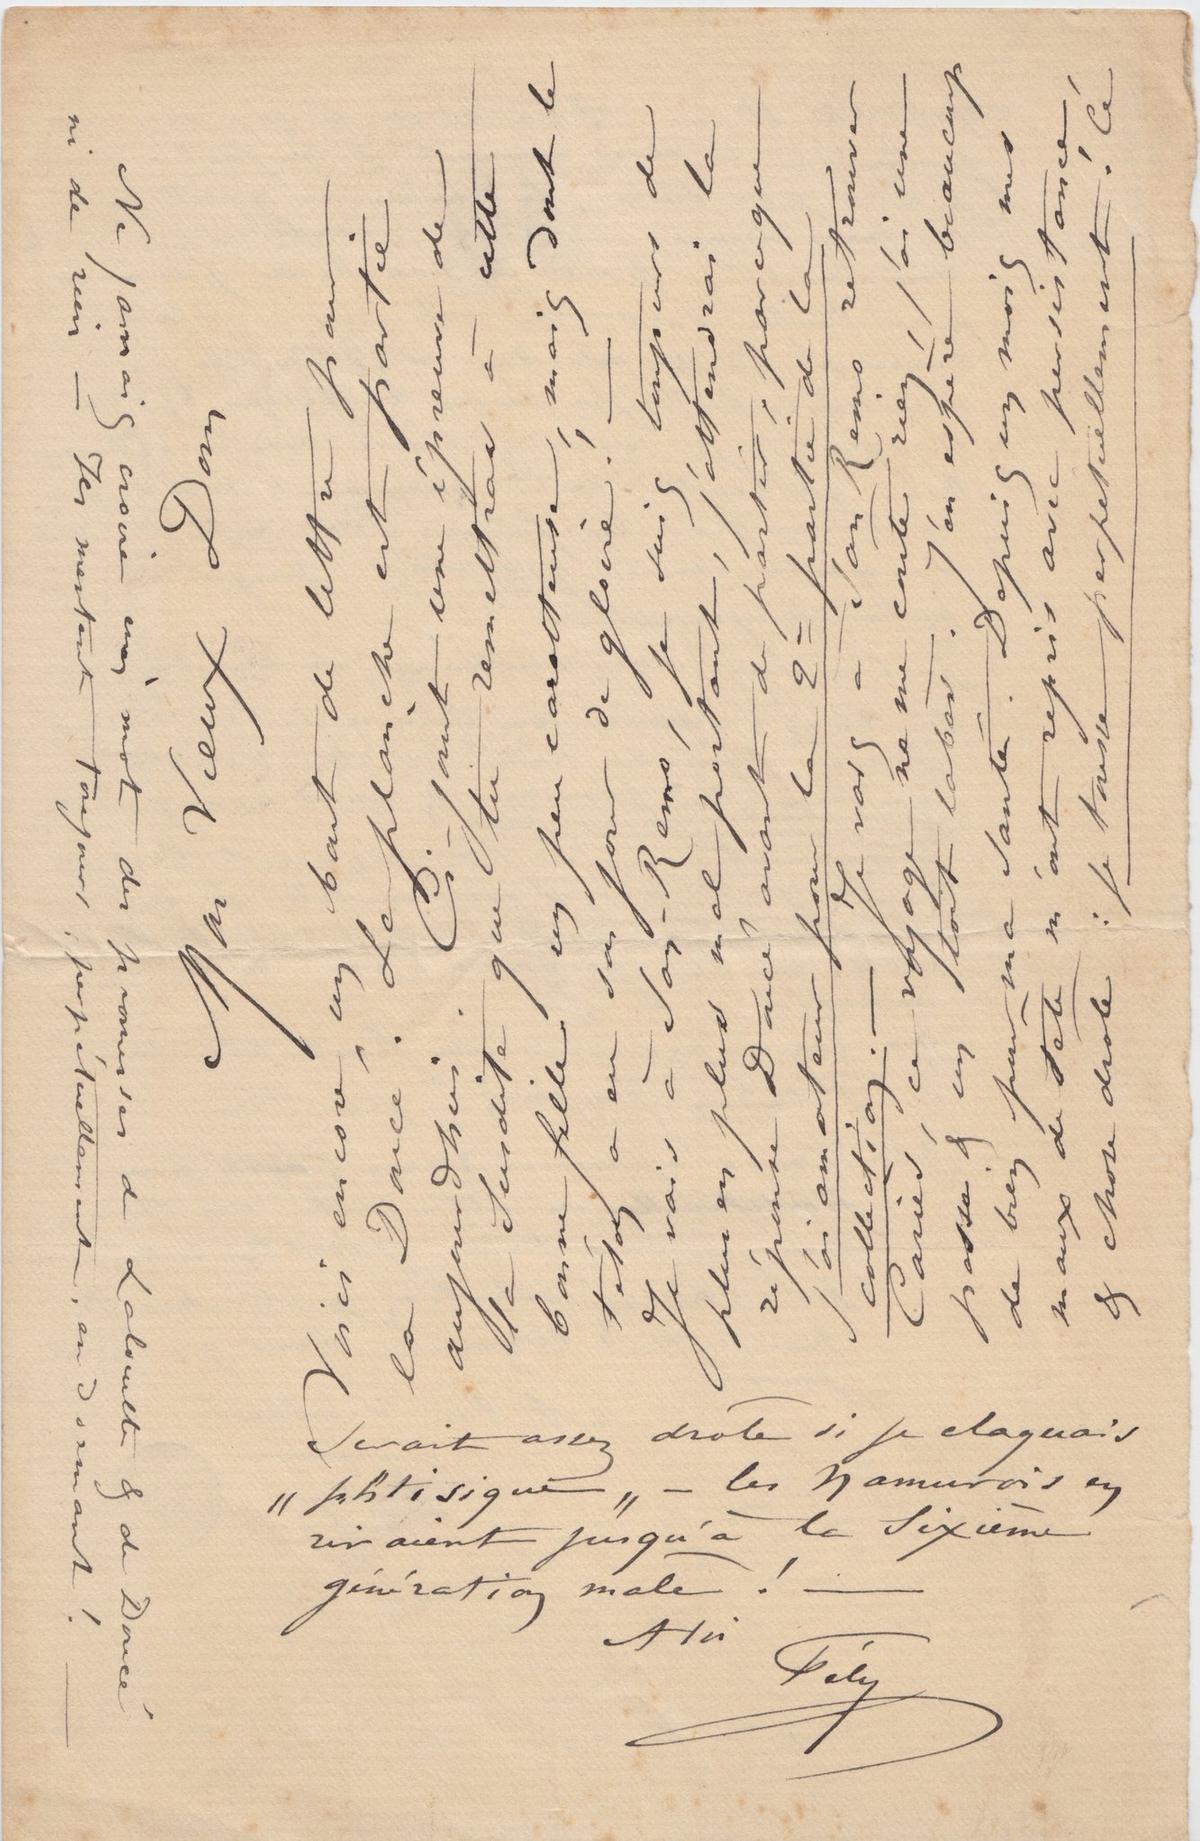 Mon Vieux
Voici encore, un bout de lettre pour
la Doucé. La planche est partie
aujourdhui. Ci-joint une épreuve de
la Susdite que tu remettras à cette
bonne fille un peu carotteuse, mais dont le
téton a eu son jour de gloire! —
Je vais à San-Remo, je suis toujours de
plus en plus mal portant, j'attendrai la
réponse Doucé avant de partir, parceque
j'ai amateur pour la 2e partie de la
collection. — Je vais à San Remo retrouver
Cariès, ce voyage ne me coute rien, j'ai une
passe & un tout labas. J'en espère beaucoup
de bien pour ma Santé. Depuis un mois mes
maux de tête m'ont repris avec persistance
& chose drole : je tousse perpetuellement! Cé
Serait assez drole si je claquais
„ phtisique „ — les Namurois en
riraient jusqu'à la Sixième
génération male ! —
A toi
Fély
Ne jamais croire un mot des promesses de Laboulle & de Doucé
ni de rien — Tes mentent toujours, perpétuellement, en dormant ! —